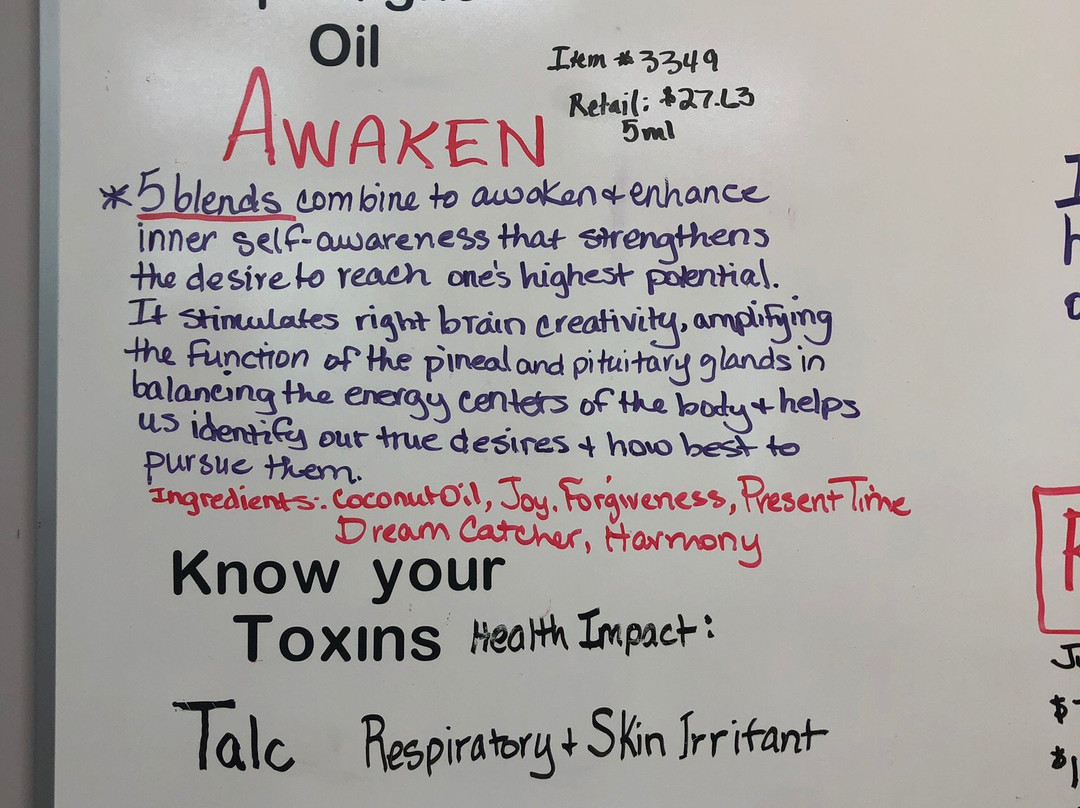 Oil
Item # 3349
Retail: $27.63
5ml
AWAKEN
*5 blends combine to awaken & enhance
inner self-awareness that strengthens
the desire to reach one's highest potential.
It stimulates right brain creativity, amplifying
the function of the pineal and pituitary glands in
balancing the energy centers of the body & helps
us identify our true desires & how best to
pursue them.
Ingredients: Coconut Oil, Joy, Forgiveness, Present Time
Dream Catcher, Harmony
Know your
Toxins Health Impact:
Talc Respiratory & Skin Irritant